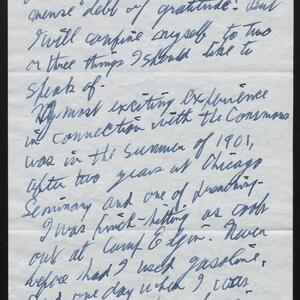 mense debt of gratitude. But
I will confine myself to two
or three things I should like to
speak of.
My most exciting experience
in connection with the Commons
was in the summer of 1901,
after two years at Chicago
Seminary and one of preaching.
I was pinch-hitting as cook
out at Camp Elgin. Never
before had I used gasoline,
and one day when I was